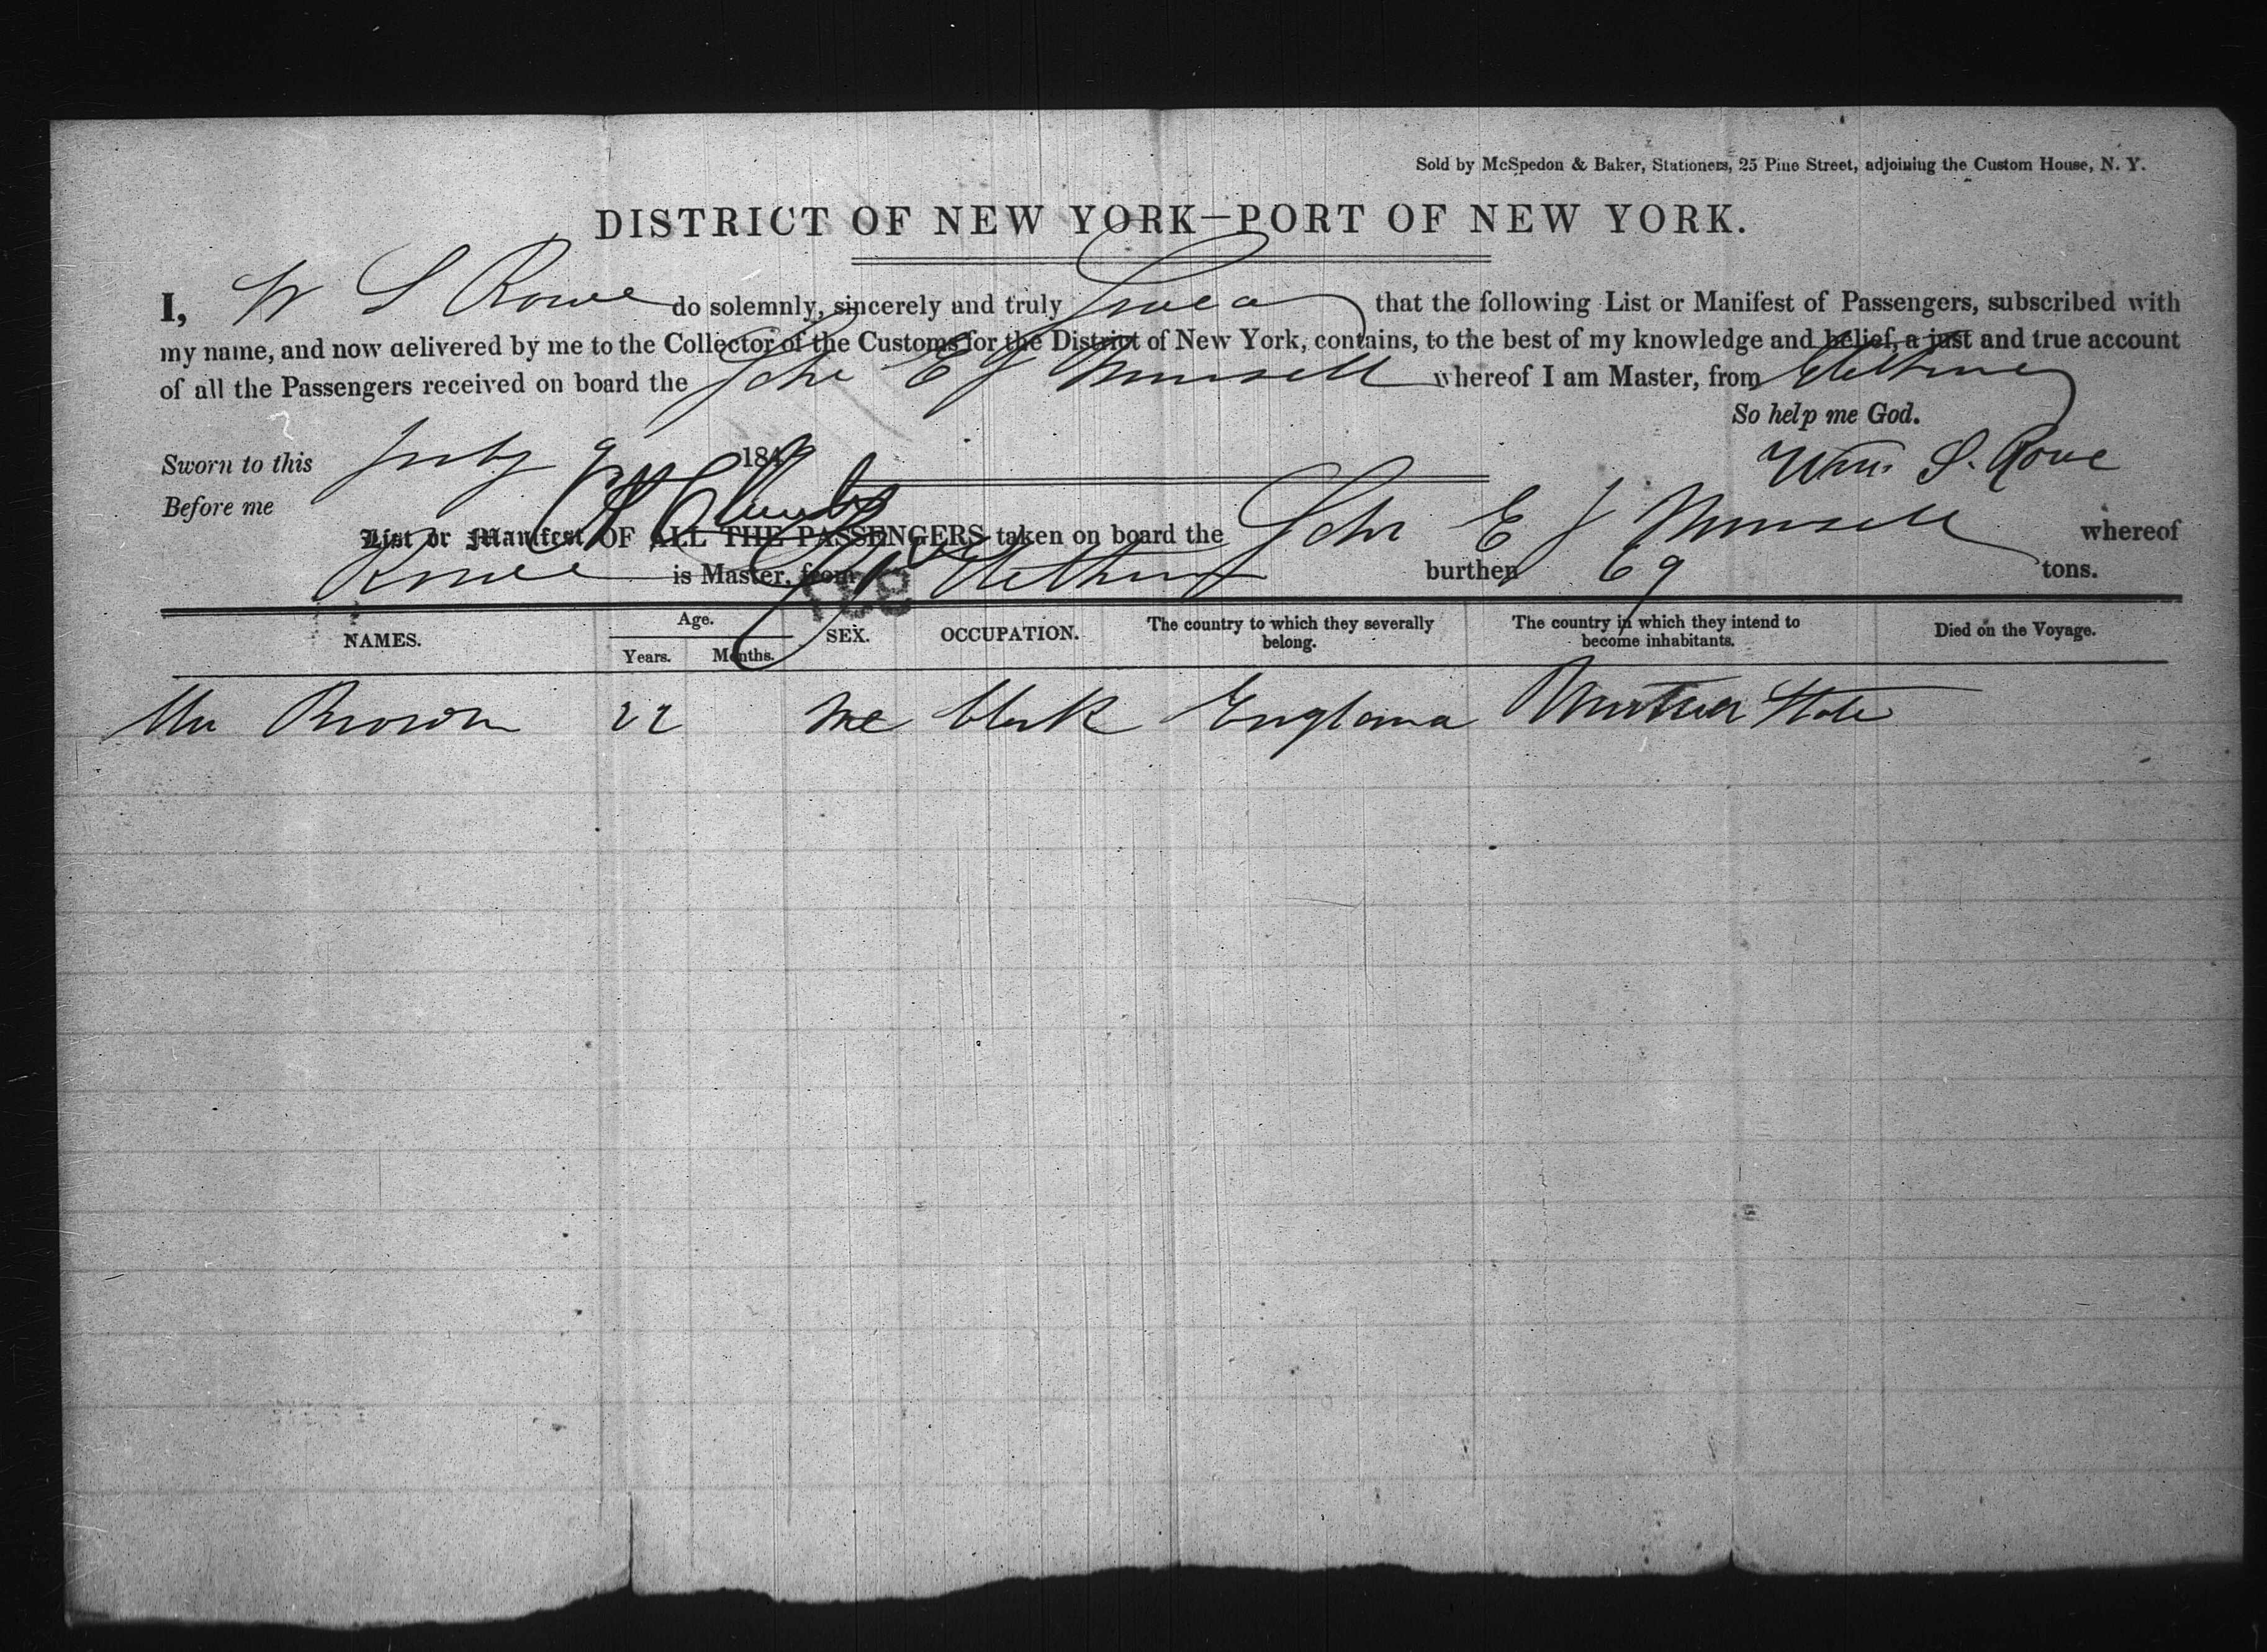 Sold by McSpedon & Baker, Stationers, 25 Pine Street, adjoining the Custom House, N. Y.
DISTRICT OF NEW YORK—PORT OF NEW YORK.
I, W S Rowe do solemnly, sincerely and truly Swear that the following List or Manifest of Passengers, subscribed with
my name, and now delivered by me to the Collector of the Customs for the District of New York, contains, to the best of my knowledge and belief, a just and true account
of all the Passengers received on board the Schr E J Munsell whereof I am Master, from
So help me God.
Sworn to this July 9 1849 Wm. S. Rowe
Before me
List or Manifest OF ALL THE PASSENGERS taken on board the Schr E J Munsell whereof
Rowe is Master, from burthen 69 tons.
NAMES. Age. SEX. OCCUPATION. The country to which they severally belong. The country in which they intend to become inhabitants. Died on the Voyage.
Years. Months.
Mr Brown 22 Me Clerk England State